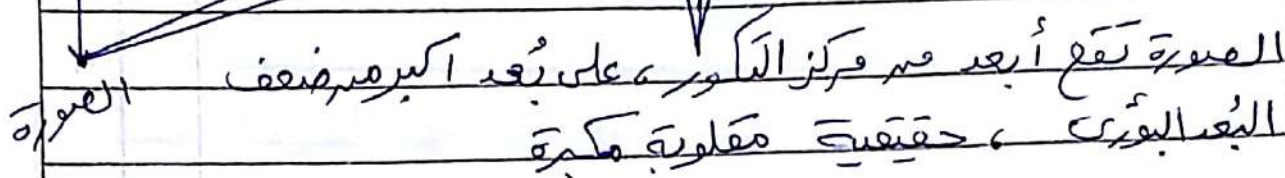 الصورة تقع أبعد من مركز التكور، على بُعد اكبر من ضعف
البُعد البؤرى ، حقيقية مقلوبة مكبرة
الصورة